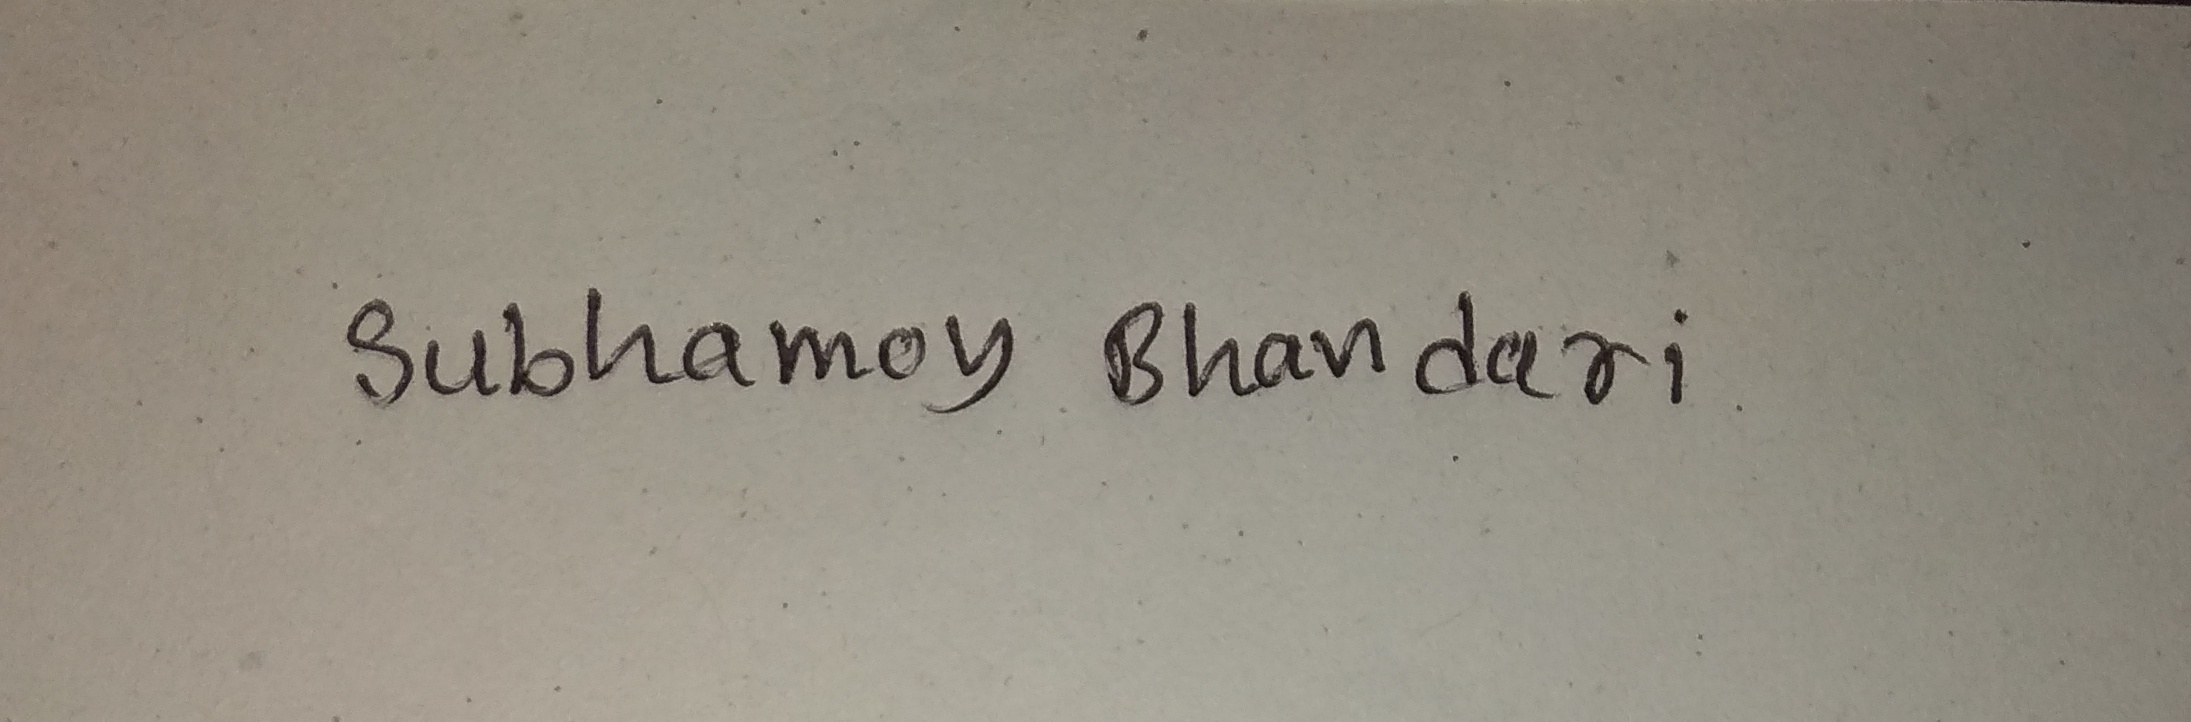 Subhamoy Bhandari